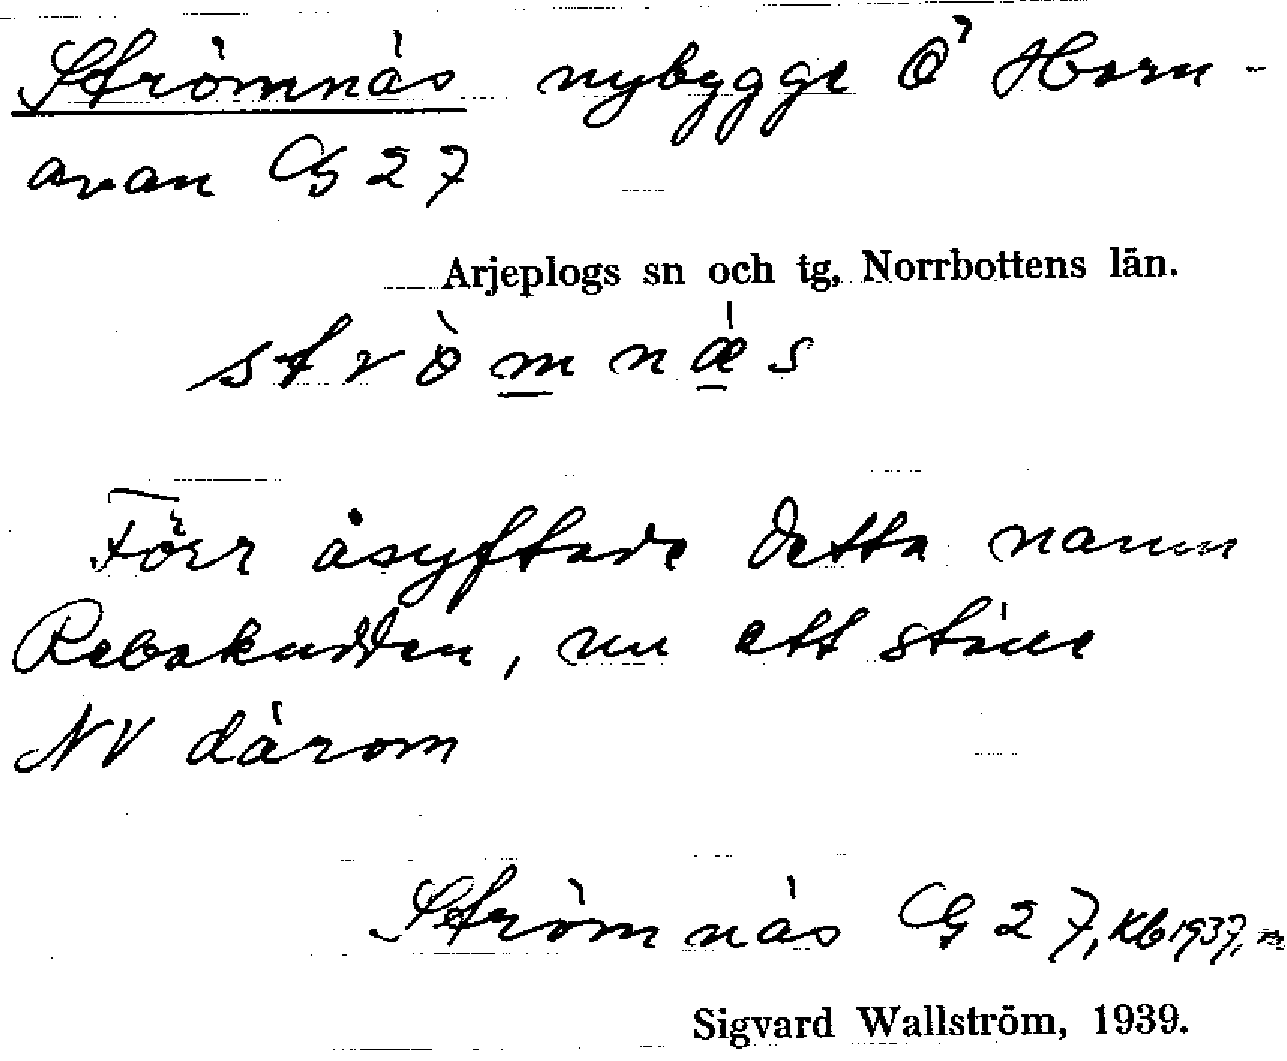 Strömnäs nybygge Ö Horn-
avan G 27
Arjeplogs sn och tg, Norrbottens län.
strömnæs
Förr åsyftade detta namn
Rebakudden, nu ett ställe
NV därom
Strömnäs G 27, Kb 1937,
Sigvard Wallström, 1939.